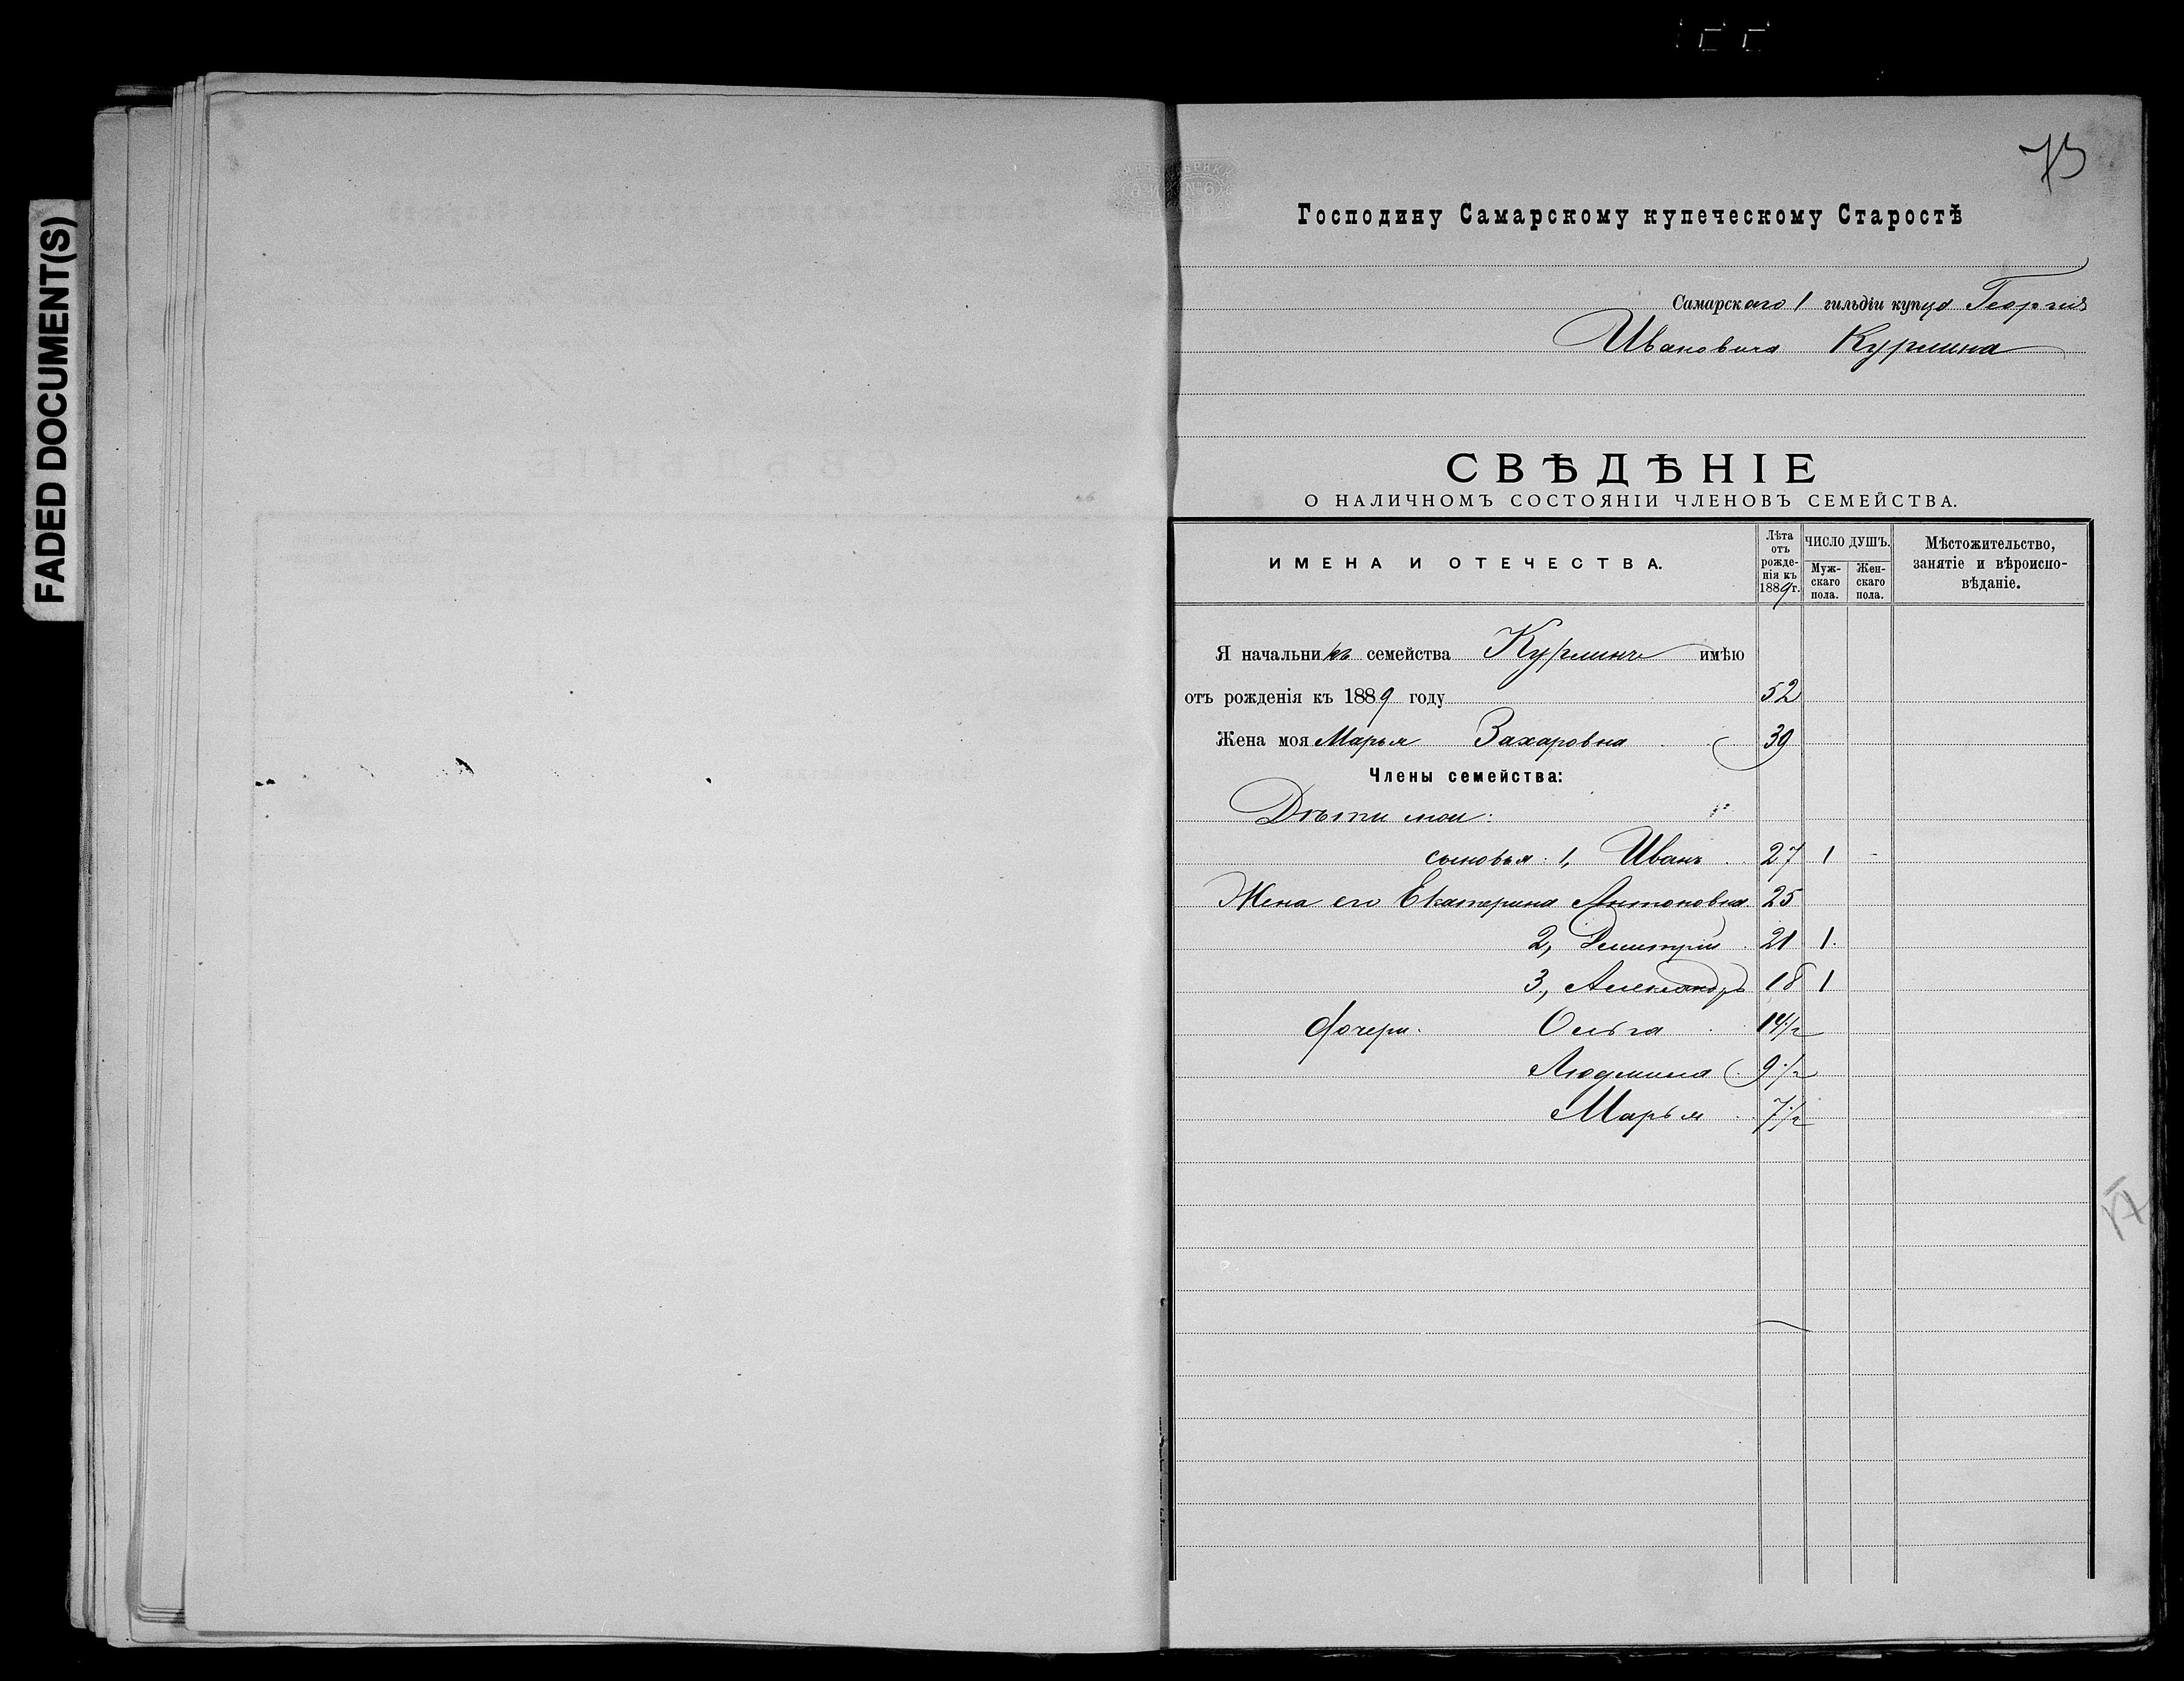 FADED DOCUMENT(S)
73
Господину Самарскому купеческому Старостѣ
Самарскаго 1 гильдіи купца Георгія
Ивановича Курлина
СВѢДѢНІЕ
О НАЛИЧНОМЪ СОСТОЯНІИ ЧЛЕНОВЪ СЕМЕЙСТВА.
ИМЕНА И ОТЕЧЕСТВА.
Лѣта отъ рожде-нія къ 1889 г.
ЧИСЛО ДУШЪ.
Муж-скаго пола.
Жен-скаго пола.
Мѣстожительство, занятіе и вѣроиспо-вѣданіе.
Я начальникъ семейства Курлинъ имѣю
отъ рожденія къ 1889 году 52
Жена моя Марья Захаровна 39
Члены семейства:
Дѣти мои:
сыновья: 1, Иванъ 27 1 -
Жена его Екатерина Антоновна 25
2, Димитрій 21 1.
3, Александръ 18 1
Дочери: Ольга 14 1/2
Людмила 9 1/2
Марья 7 1/2